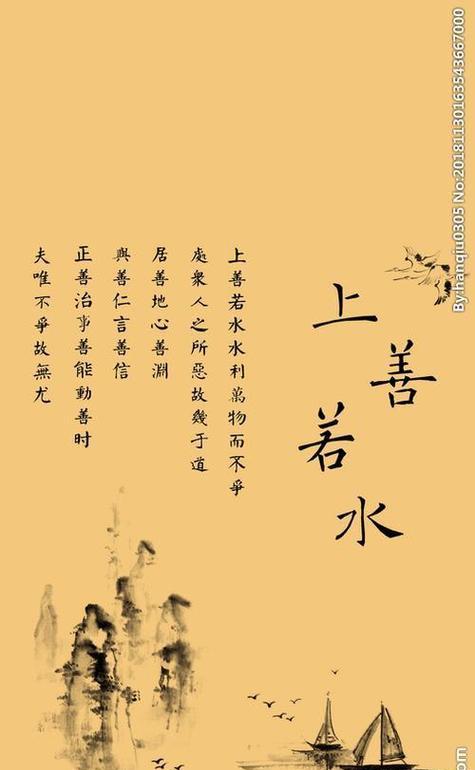 上善若水
上善若水水利萬物而不爭
處衆人之所惡故幾于道
居善地心善淵
與善仁言善信
正善治事善能動善时
夫唯不爭故無尤
By:hanqiu0305 No:20181130163543667000
om